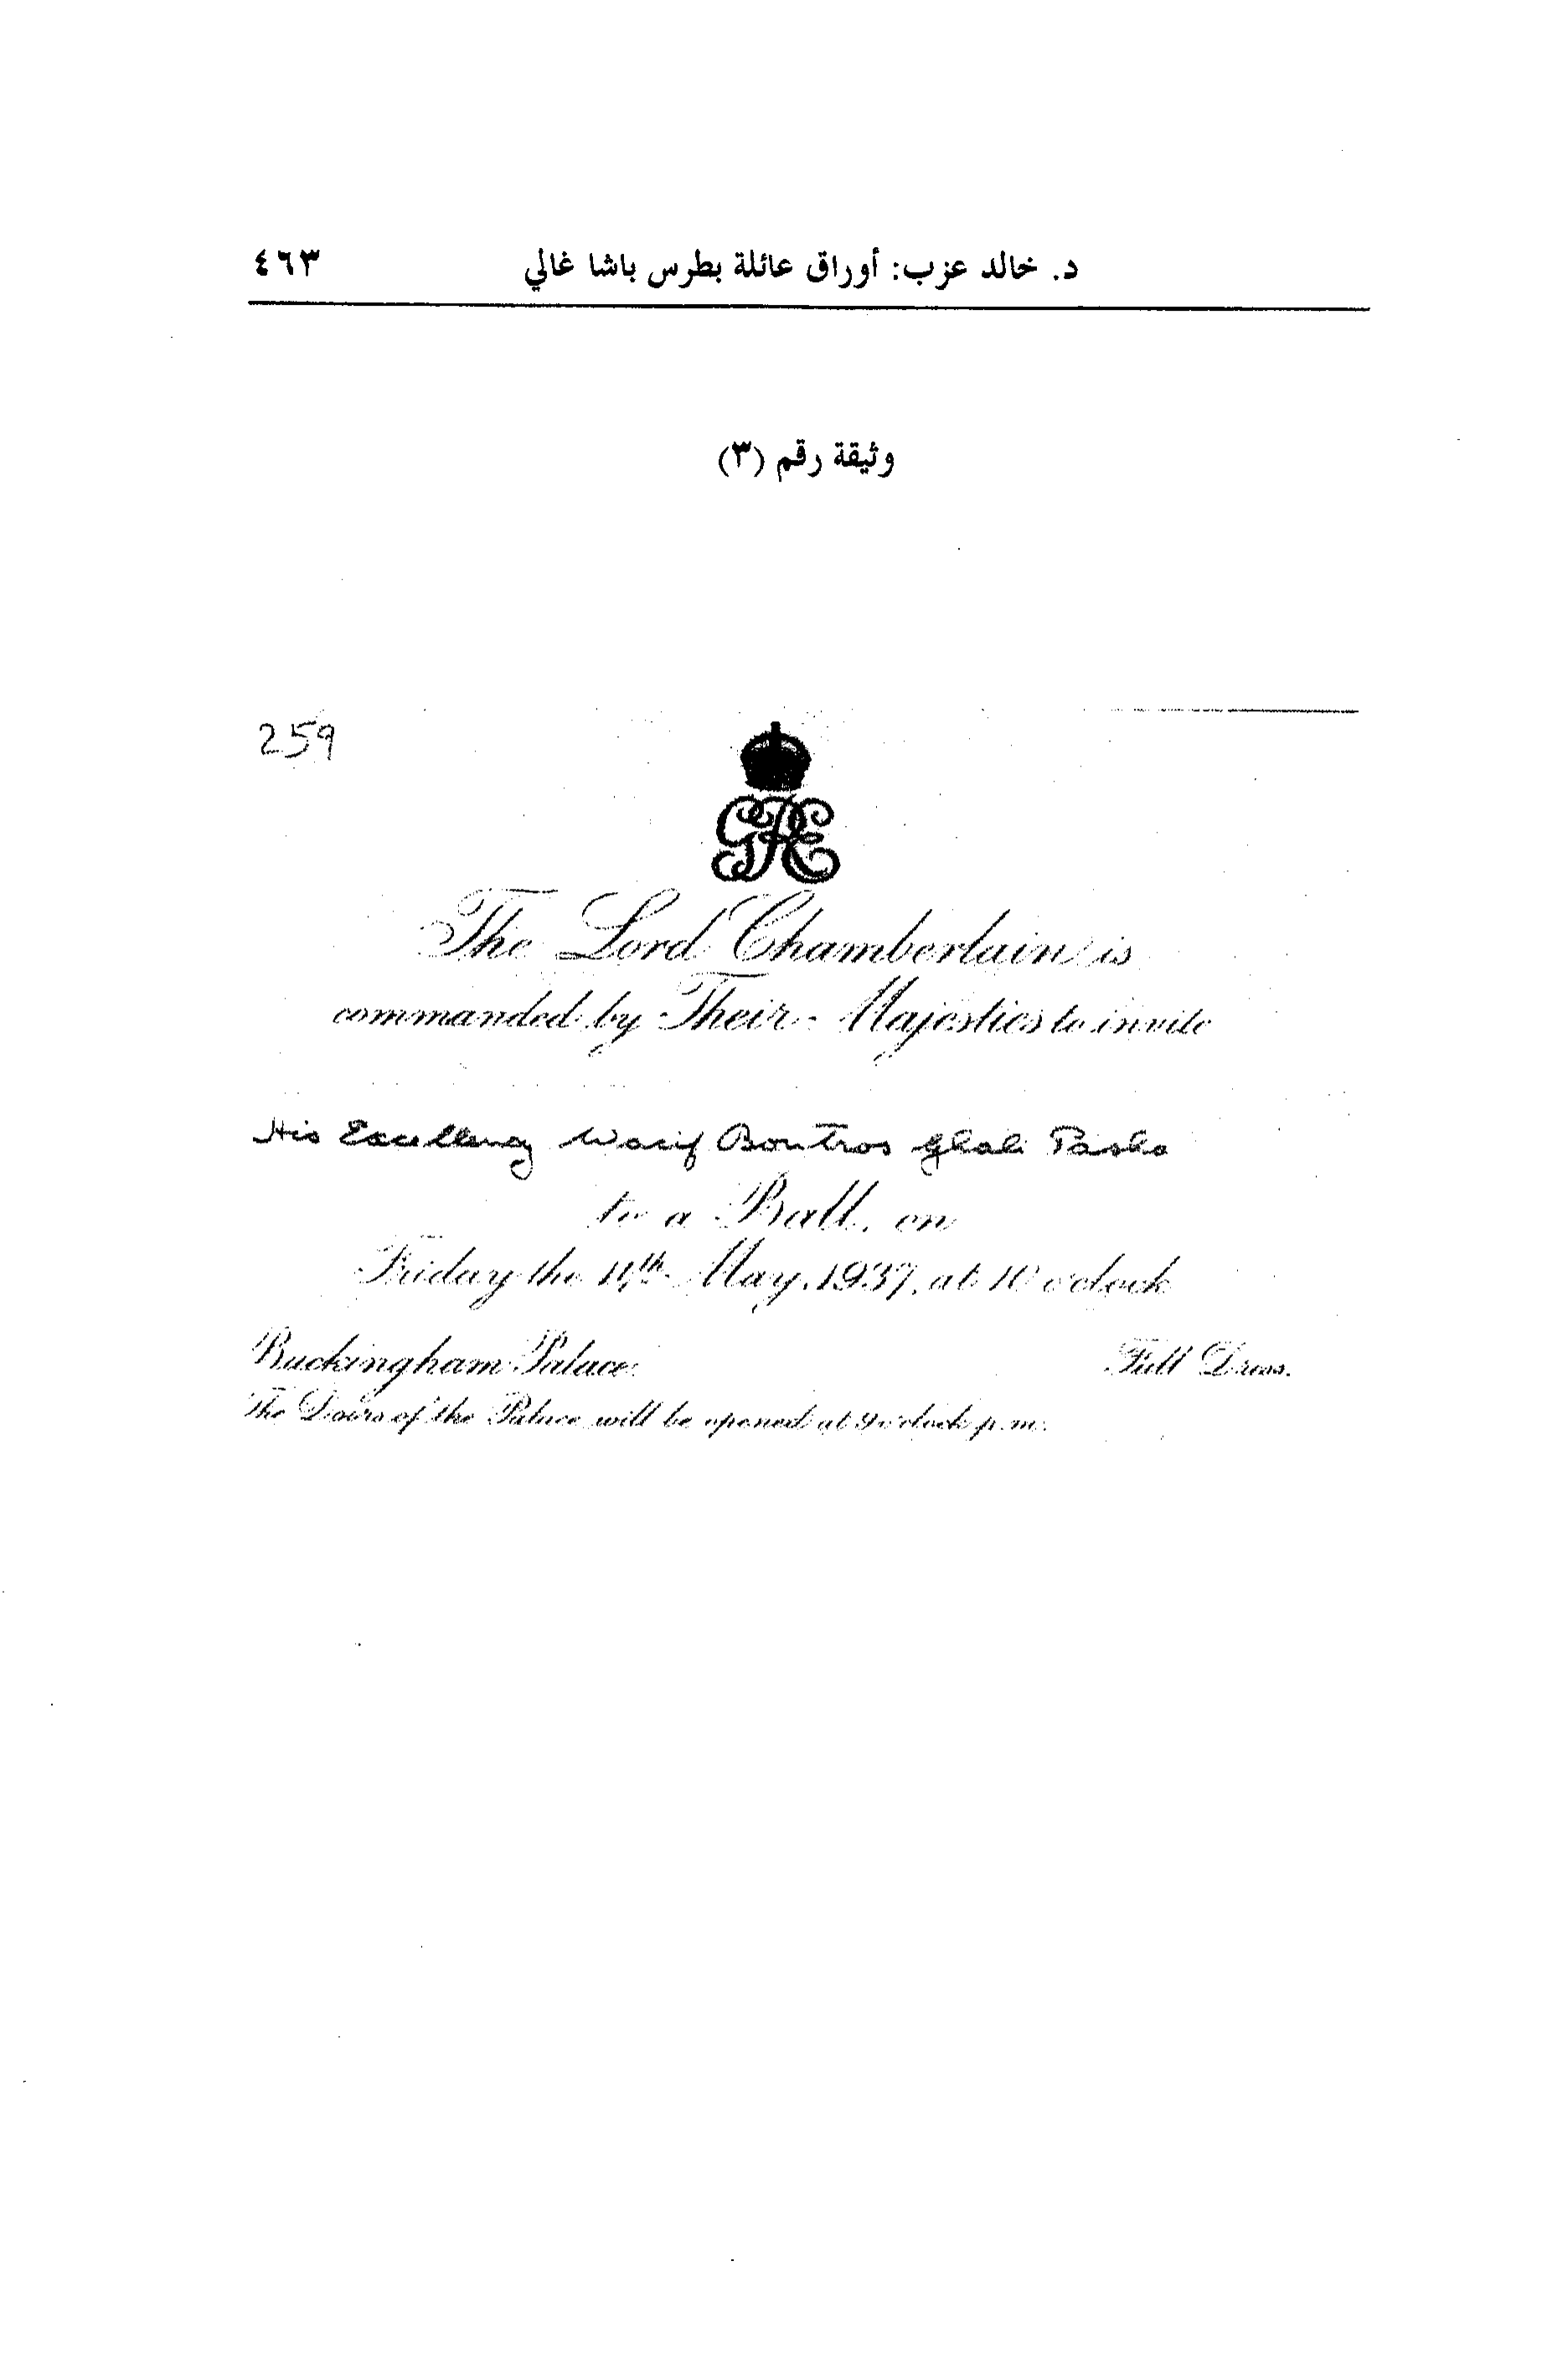 د. خالد عزب: أوراق عائلة بطرس باشا غالي ٤٦٣
وثيقة رقم (٣)
259
GRE
The Lord Chamberlain is
commanded by Their Majesties to invite
His Excellency Wacif Boutros Ghali Pasha
to a Ball, on
Friday the 14th May, 1937, at 10 o'clock
Buckingham Palace. Full Dress.
The Doors of the Palace will be opened at 9 o'clock p.m.